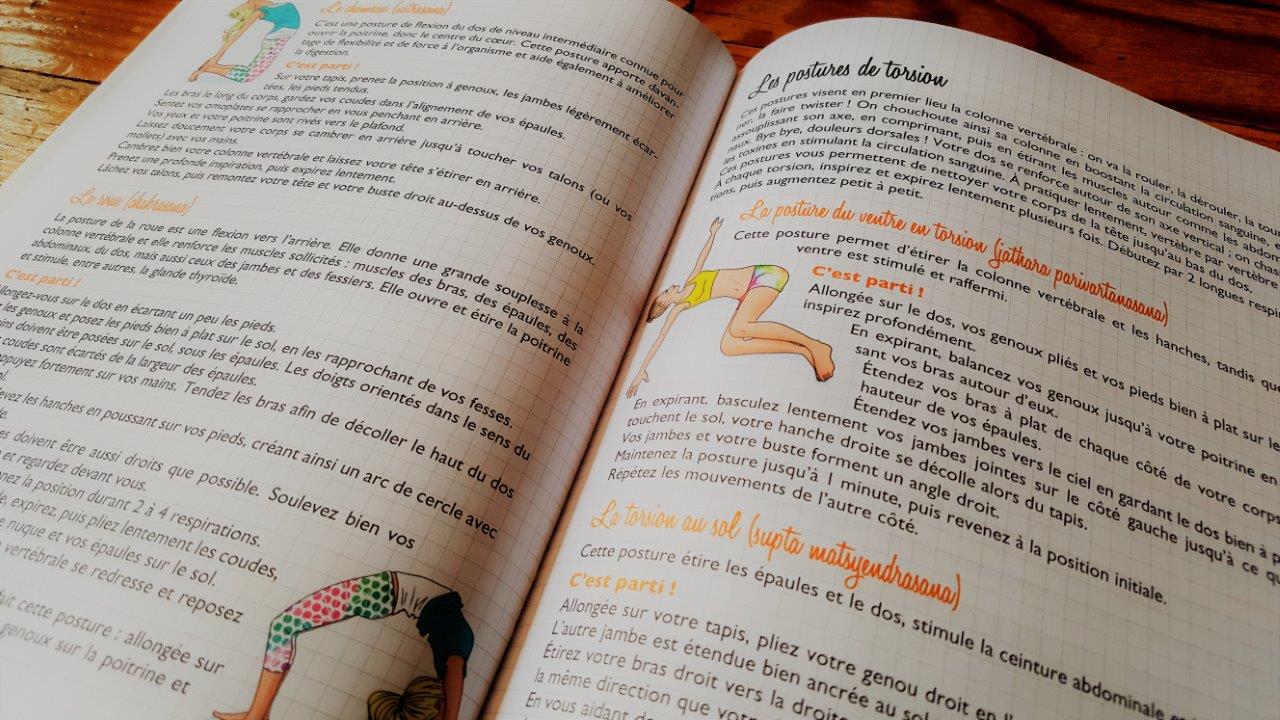 Le chameau (ustrasana)
C'est une posture de flexion du dos de niveau intermédiaire connue pour
ouvrir la poitrine, donc le centre du cœur. Cette posture apporte davan-
tage de flexibilité et de force à l'organisme et aide également à améliorer
la digestion.
C'est parti !
Sur votre tapis, prenez la position à genoux, les jambes légèrement écar-
tées, les pieds tendus.
Les bras le long du corps, gardez vos coudes dans l'alignement de vos épaules.
Sentez vos omoplates se rapprocher en vous penchant en arrière.
Vos yeux et votre poitrine sont rivés vers le plafond.
Laissez doucement votre corps se cambrer en arrière jusqu'à toucher vos talons (ou vos
mollets) avec vos mains.
Cambrez bien votre colonne vertébrale et laissez votre tête s'étirer en arrière.
Prenez une profonde inspiration, puis expirez lentement.
Lâchez vos talons, puis remontez votre tête et votre buste droit au-dessus de vos genoux.
La roue (chakrasana)
La posture de la roue est une flexion vers l'arrière. Elle donne une grande souplesse à la
colonne vertébrale et elle renforce les muscles sollicités : muscles des bras, des épaules, des
abdominaux, du dos, mais aussi ceux des jambes et des fessiers. Elle ouvre et étire la poitrine
et stimule, entre autres, la glande thyroïde.
C'est parti !
llongez-vous sur le dos en écartant un peu les pieds.
les genoux et posez les pieds bien à plat sur le sol, en les rapprochant de vos fesses.
ins doivent être posées sur le sol, sous les épaules. Les doigts orientés dans le sens du
coudes sont écartés de la largeur des épaules.
ppuyez fortement sur vos mains. Tendez les bras afin de décoller le haut du dos
ol.
evez les hanches en poussant sur vos pieds, créant ainsi un arc de cercle avec
le.
es doivent être aussi droits que possible. Soulevez bien vos
et regardez devant vous.
nez la position durant 2 à 4 respirations.
e, expirez, puis pliez lentement les coudes,
nuque et vos épaules sur le sol.
vertébrale se redresse et reposez
fait cette posture : allongée sur
genoux sur la poitrine et
Les postures de torsion
Ces postures visent en premier lieu la colonne vertébrale : on va la rouler, la dérouler, la tour-
ner, la faire twister ! On chouchoute ainsi sa colonne en boostant la circulation sanguine,
assouplissant son axe, en comprimant, puis en étirant les muscles autour comme les abdomi-
naux. Bye bye, douleurs dorsales ! Votre dos se renforce autour de son axe vertical ; on chas
les toxines en stimulant la circulation sanguine. À pratiquer lentement, vertèbre par vertèbre
Ces postures vous permettent de nettoyer votre corps de la tête jusqu'au bas du dos.
À chaque torsion, inspirez et expirez lentement plusieurs fois. Débutez par 2 longues respi
tions, puis augmentez petit à petit.
La posture du ventre en torsion (jathara parivartanasana)
Cette posture permet d'étirer la colonne vertébrale et les hanches, tandis que
ventre est stimulé et raffermi.
C'est parti !
Allongée sur le dos, vos genoux pliés et vos pieds bien à plat sur le
inspirez profondément.
En expirant, balancez vos genoux jusqu'à votre poitrine en
sant vos bras autour d'eux.
Étendez vos bras à plat de chaque côté de votre corps
hauteur de vos épaules.
Étendez vos jambes vers le ciel en gardant le dos bien à p
En expirant, basculez lentement vos jambes jointes sur le côté gauche jusqu'à ce qu
touchent le sol, votre hanche droite se décolle alors du tapis.
Vos jambes et votre buste forment un angle droit.
Maintenez la posture jusqu'à 1 minute, puis revenez à la position initiale.
Répétez les mouvements de l'autre côté.
La torsion au sol (supta matsyendrasana)
Cette posture étire les épaules et le dos, stimule la ceinture abdominale
C'est parti !
Allongée sur votre tapis, pliez votre genou droit en
L'autre jambe est étendue bien ancrée au sol
Étirez votre bras droit vers la droite
la même direction que votre
En vous aidant de